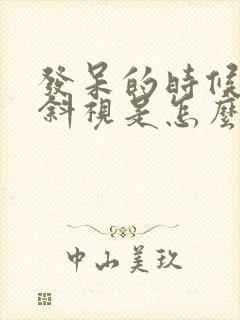 發呆的時候
斜視是怎麼
中山美玖